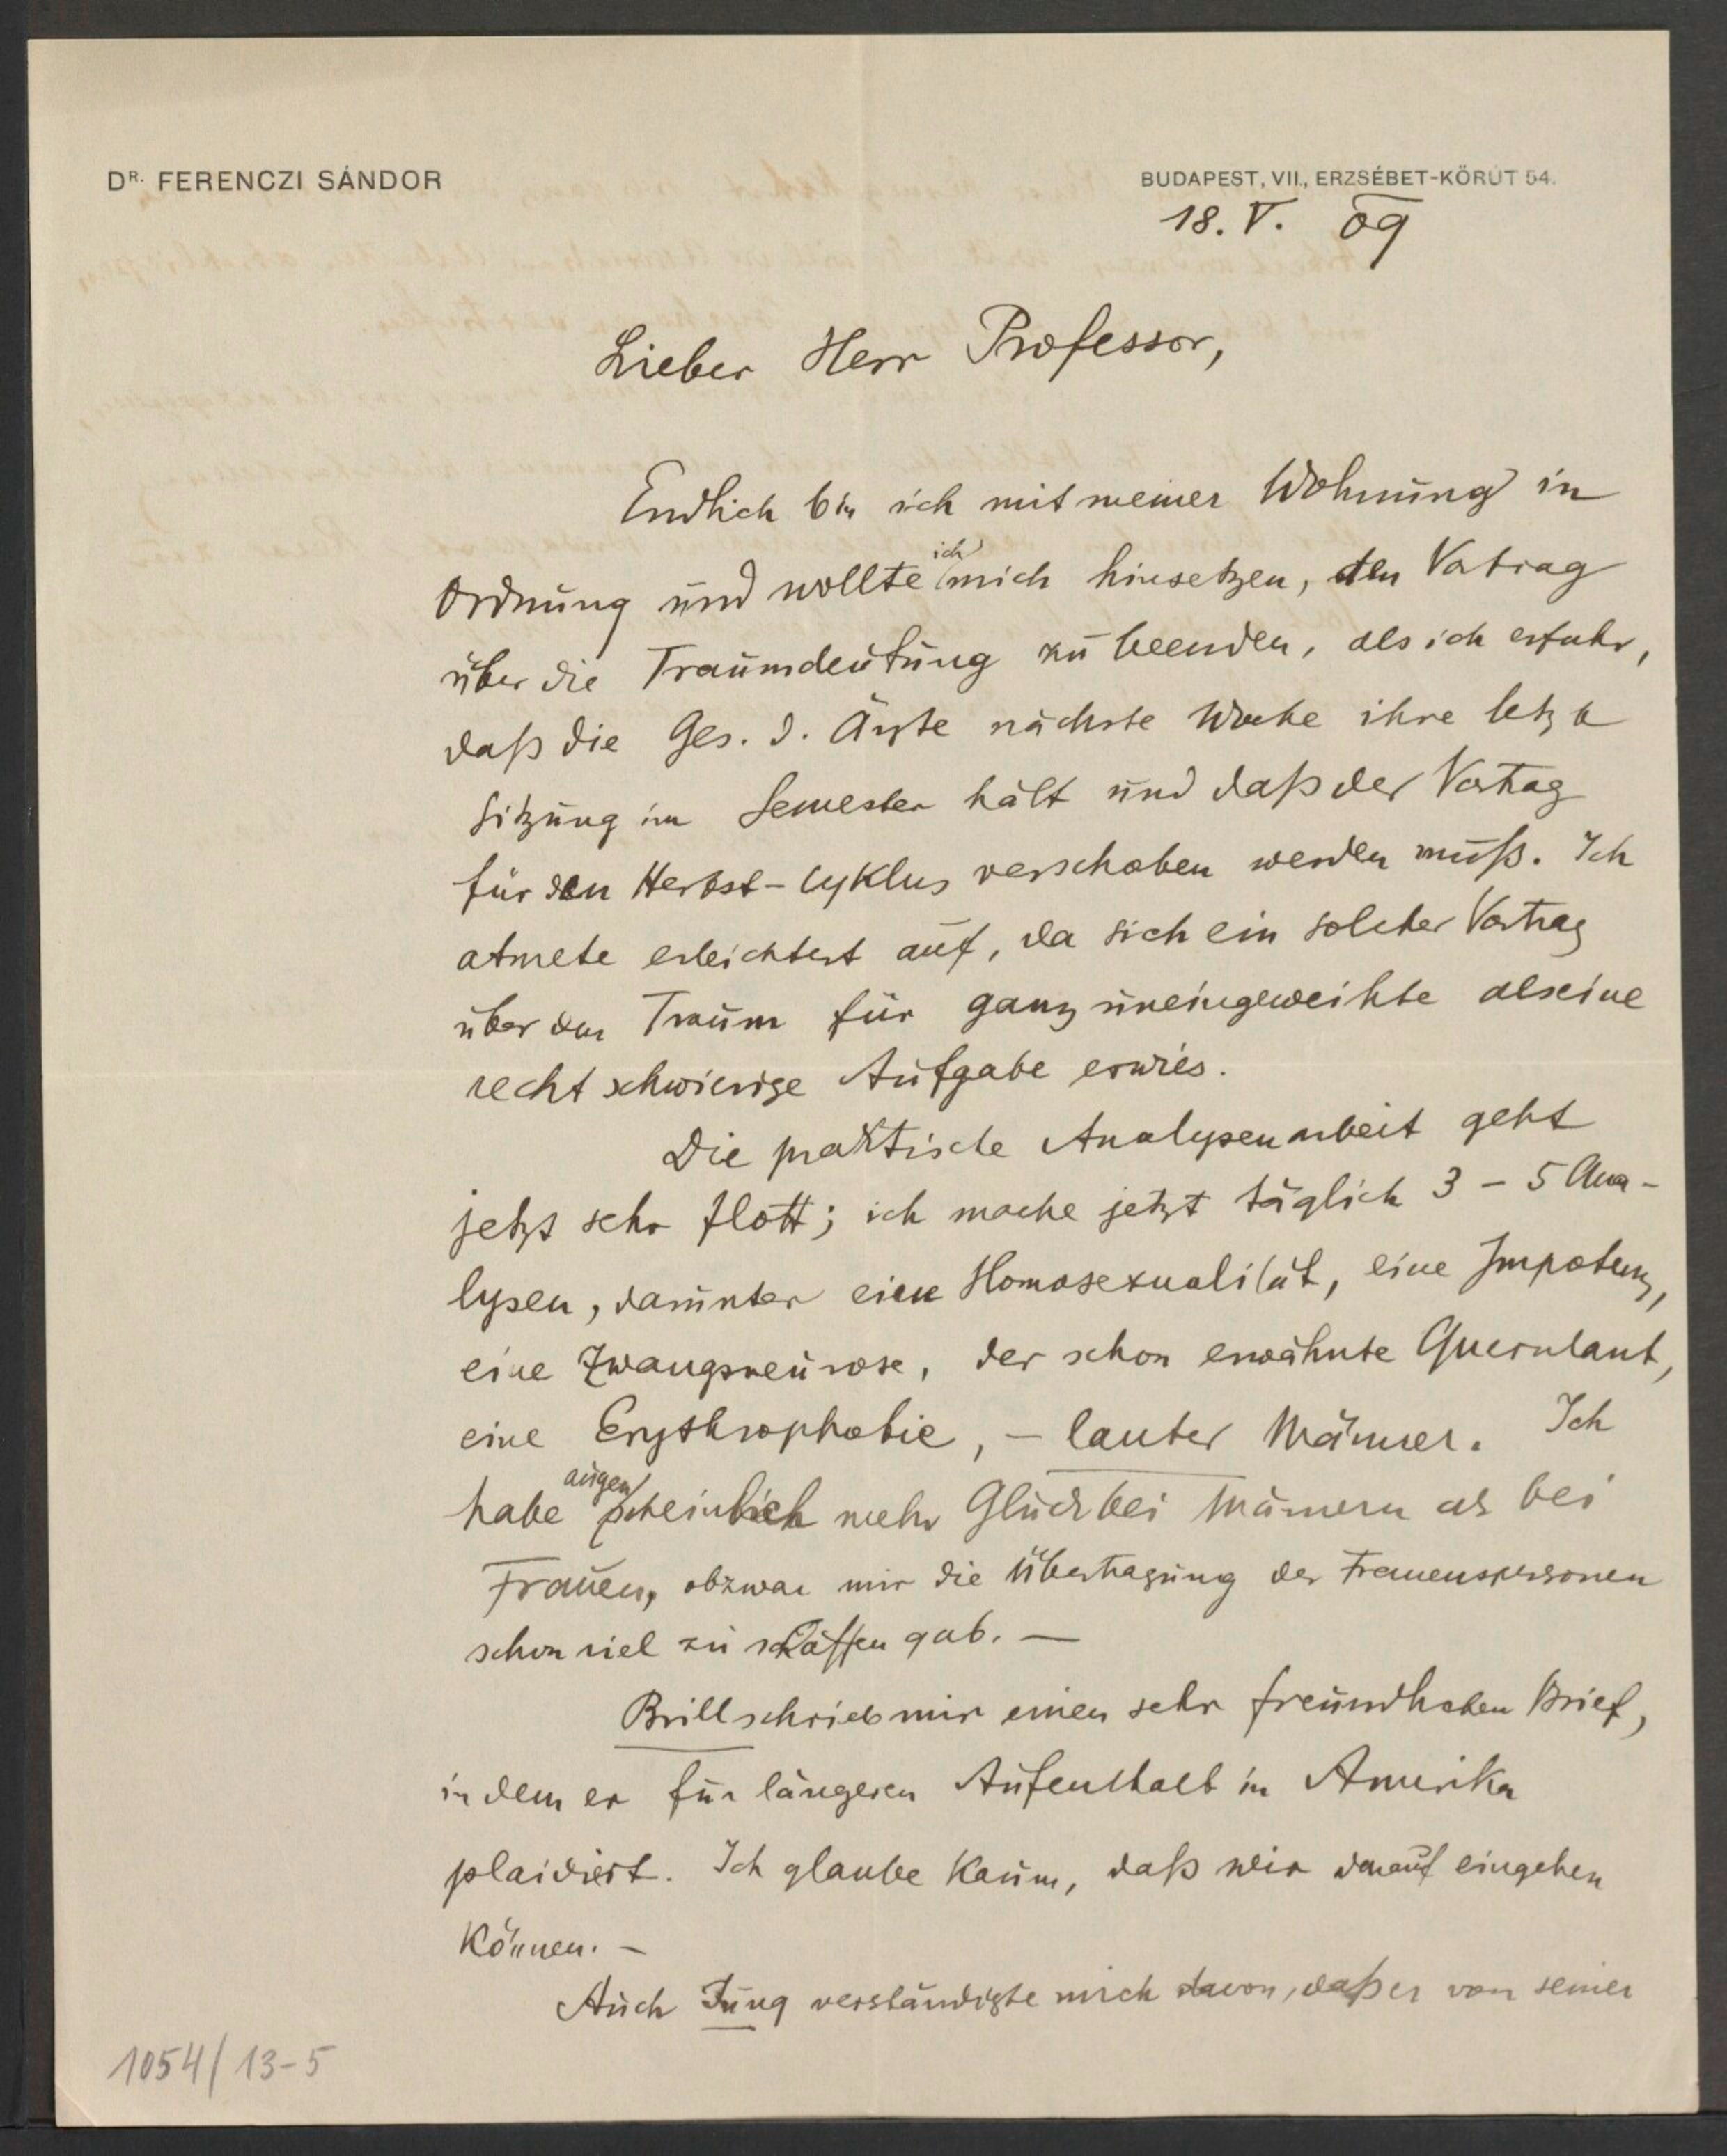 DR. FERENCZI SÁNDOR
BUDAPEST, VII., ERZSÉBET-KÖRÚT 54.
18. V. 09
Lieber Herr Professor,
Endlich bin ich mit meiner Wohnung in
Ordnung und wollte ich mich hinsetzen, den Vortrag
über die Traumdeutung zu beenden, als ich erfuhr,
daß die Ges. d. Ärzte nächste Woche ihre letzte
Sitzung im Semester hält und daß der Vortrag
für den Herbst-Cyklus verschoben werden muß. Ich
atmete erleichtert auf, da sich ein solcher Vortrag
über den Traum für ganz uneingeweihte als eine
recht schwierige Aufgabe erwies.
Die praktische Analysenarbeit geht
jetzt sehr flott; ich mache jetzt täglich 3 – 5 Ana-
lysen, darunter eine Homosexualität, eine Impotenz,
eine Zwangsneurose, der schon erwähnte Querulant,
eine Erythrophobie, – lauter Männer. Ich
habe augenscheinlich mehr Glück bei Männern als bei
Frauen, obzwar mir die Übertragung der Frauenspersonen
schon viel zu schaffen gab. —
Brill schrieb mir einen sehr freundlichen Brief,
in dem er für längeren Aufenthalt in Amerika
plaidiert. Ich glaube kaum, daß wir darauf eingehen
können. –
Auch Jung verständigte mich davon, daß er von seiner
1054/13-5